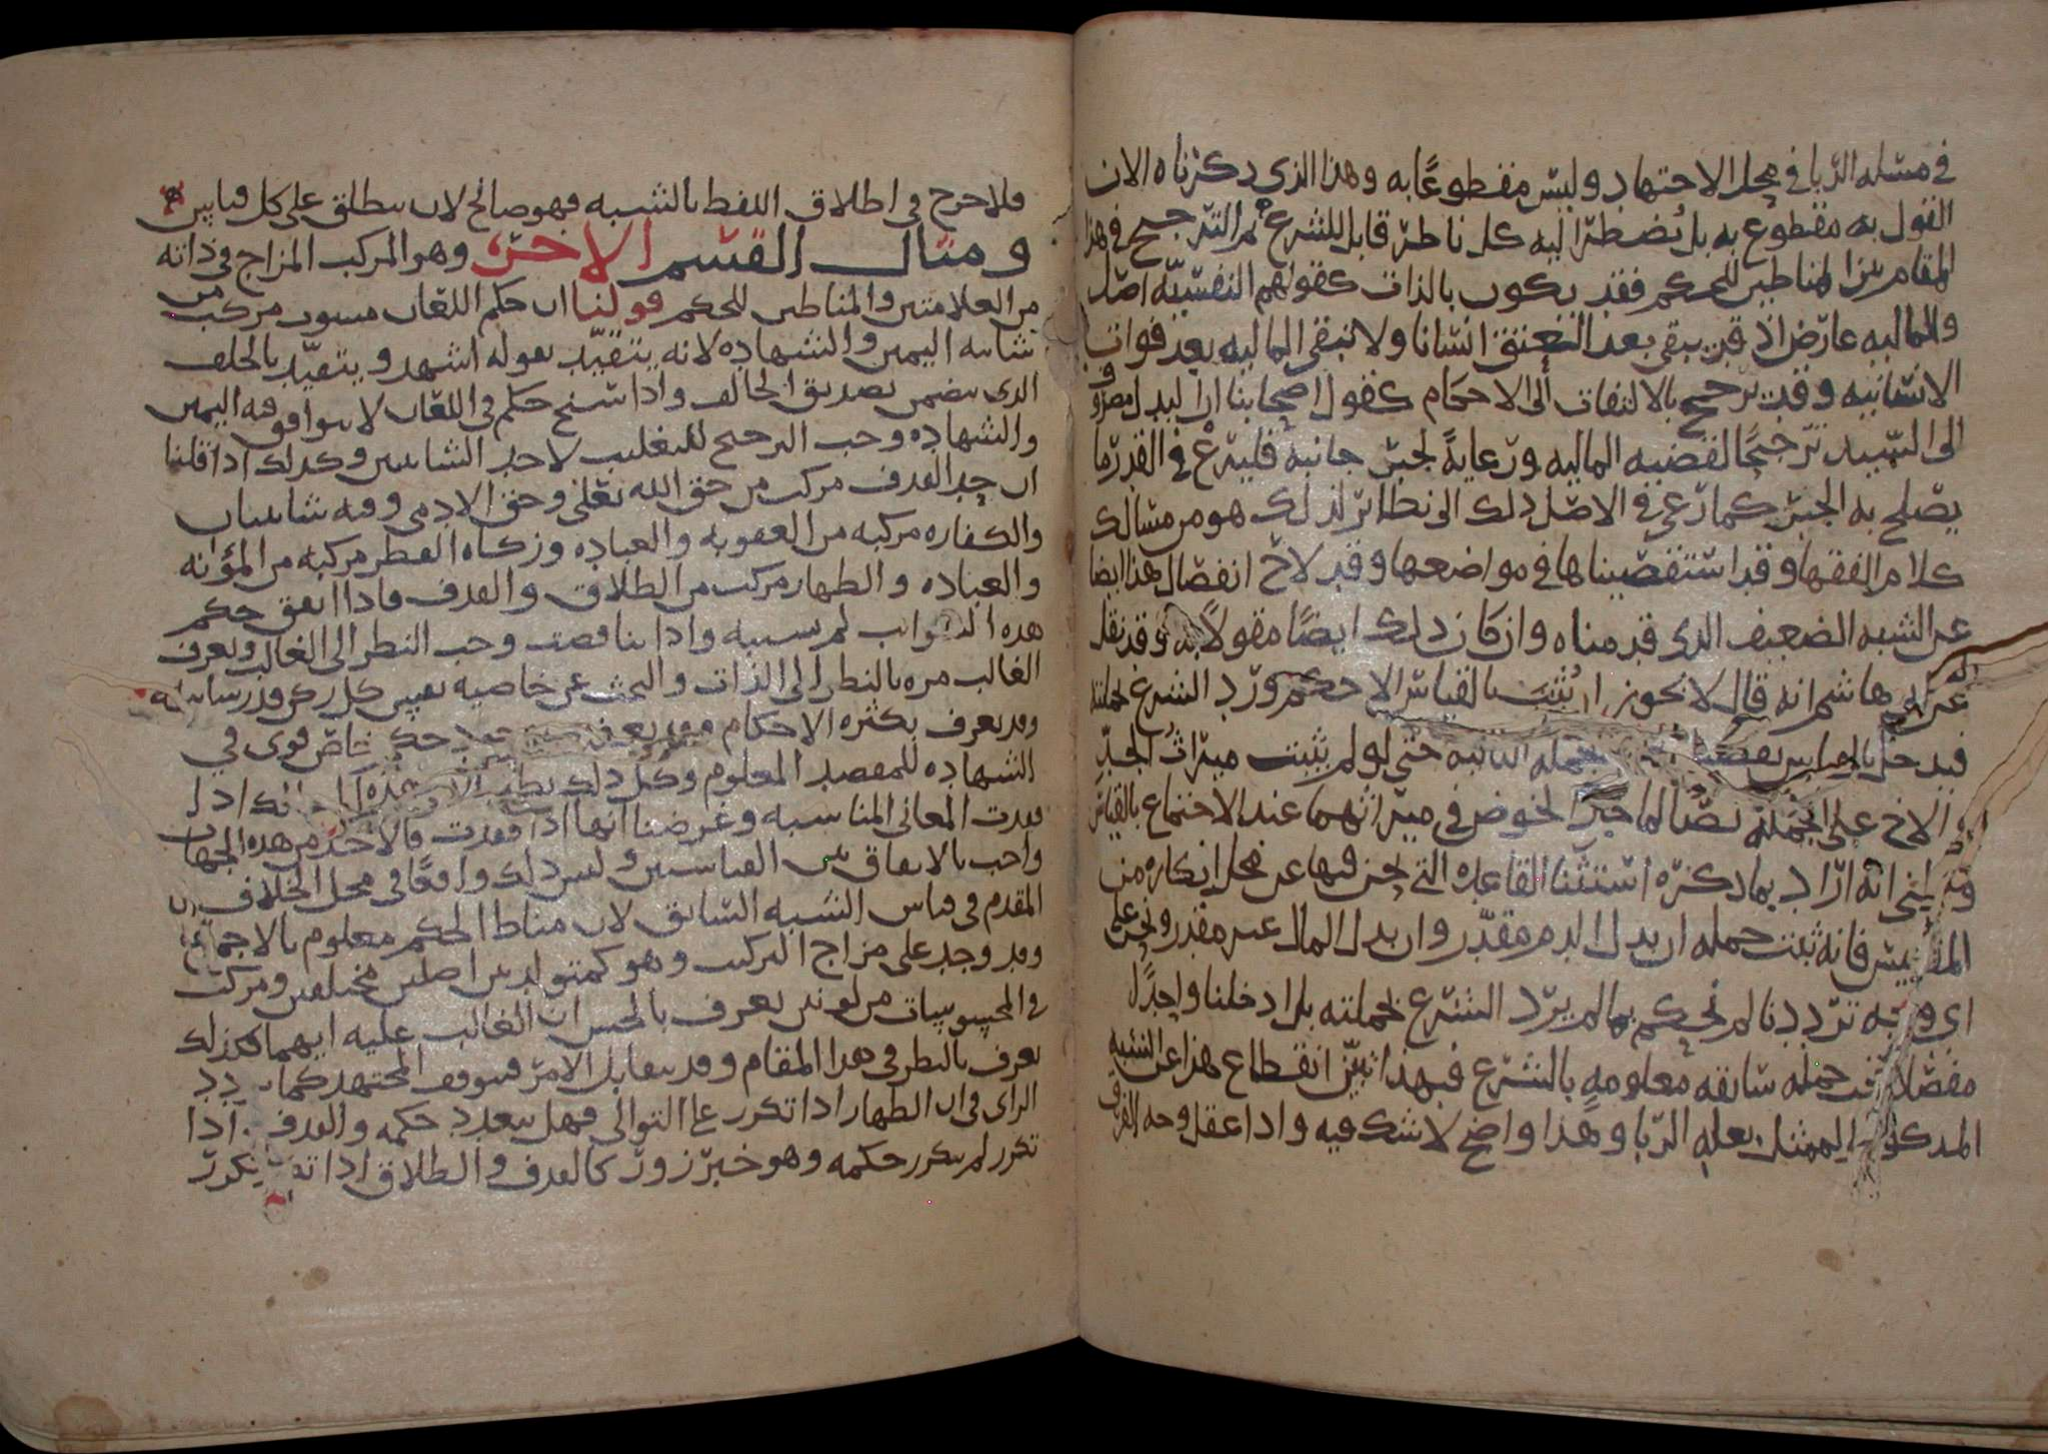 في مسله الربا في محل الاجتهاد وليس مقطوعًا به وهذا الذي ذكرناه الان
القول به مقطوع به بل يُضطر اليه كل ناظر قابل للشرع ثم الترجيح في هذا
المقام بين المناطين للحكم فقد يكون بالذات كقولهم النفسيّة اصل
والماليه عارض اذ قد يبقى بعد العتق انسانا ولا تبقى الماليه بعد فوات
الانسانيه وقد يرجح بالالتفات الى الاحكام كقول اصحابنا ان البدل مصروف
الى السيد ترجيحًا لقضيه الماليه ورعايةً لجبر جانبه فليرع في القدر ما
يصلح به الجبر كما رعي في الاصل ذلك الى نظائر لذلك هو من مسالك
كلام الفقها وقد استقصيناها في مواضعها وقد لاح انفصال هذا ايضا
عن الشبه الضعيف الذي قدمناه وان كان ذلك ايضًا مقولاً به وقد نقل
عن ابي هاشم انه قال لا يجوز ان يُثبت بالقياس الا حكم ورد الشرع بجملته
فيدخل بالقياس تحت الجمله الثابته حتى لو لم يثبت ميراث الجدِّ
والاخ على الجمله نصًا لما جاز الخوض في ميراثهما عند الاجتماع بالقياس
انه اراد بما ذكره استثنا القاعده التي نحن فيها عن محل انكاره من
المقاييس فانه ثبت جمله ان بدل الدم مقدّر وان بدل المال غير مقدر ونحن على
اي وجه ترددنا لم نحكم بما لم يرد الشرع بجملته بل ادخلنا واحدًا
مفصلا تحت جمله سابقه معلومه بالشرع فبهذا تبيّن انقطاع هذا عن الشبه
المذكور الممثل بعله الربا وهذا واضح لا شك فيه واذا عقل وجه الفرق
فلا حرج في اطلاق اللفظ بالشبه فهو صالح لان يطلق على كل قياس
ومثال القسم الاخر وهو المركب المزاج في ذاته
من العلامتين والمناطين للحكم قولنا ان حكم اللعان مسوب مركب من
شائبه اليمين والشهاده لانه يتقيّد بقوله اشهد ويتقيّد بالحلف
الذي يتضمن تصديق الحالف واذا سنح حكم في اللعان لا يتوافق فيه اليمين
والشهاده وجب الترجيح للتغليب لاحد الشائبين وكذلك اذا قلنا
ان حد القذف مركب من حق الله تعلى وحق الادمي وفيه شائبتان
والكفاره مركبه من العقوبه والعباده وزكاه الفطر مركبه من المؤنه
والعباده والظهار مركب من الطلاق والقذف فاذا اتفق حكم
هذه الشوائب لم نبال به واذا تناقضت وجب النظر الى الغالب ويعرف
الغالب مره بالنظر الى الذات والبحث عن خاصيه نفس كل ركن وقدر شائبته
وقد يعرف بكثره الاحكام وقد يعرف حكم خاص قوي في
الشهاده للمقصد المعلوم وكل ذلك يطلب
قدرت المعاني المناسبه وغرضنا انها اذا فقدت فالاخذ من هذه الجهات
واجب بالاتفاق بين القياسيين وليس ذلك واقعًا في محل الخلاف
المقدم في قياس الشبه السابق لان مناط الحكم معلوم بالاجماع
وقد وجد على مزاج التركيب وهو كمتولد بين اصلين مختلفين ومركب
في المحسوسات من لونين يعرف بالحس ان الغالب عليه ايهما فكذلك
يعرف بالنظر في هذا المقام وقد يتقابل الامر فيتوقف المجتهد كما يتردد
الراي في ان الظهار اذا تكرر على التوالي فهل يتعدد حكمه والقذف اذا
تكرر لم يتكرر حكمه وهو خبر زور كالقذف والطلاق اذا تكرر